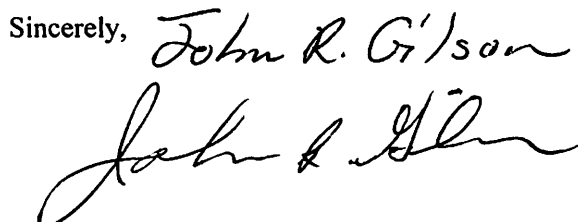 Sincerely, John R. Gilson
John R. Gilson